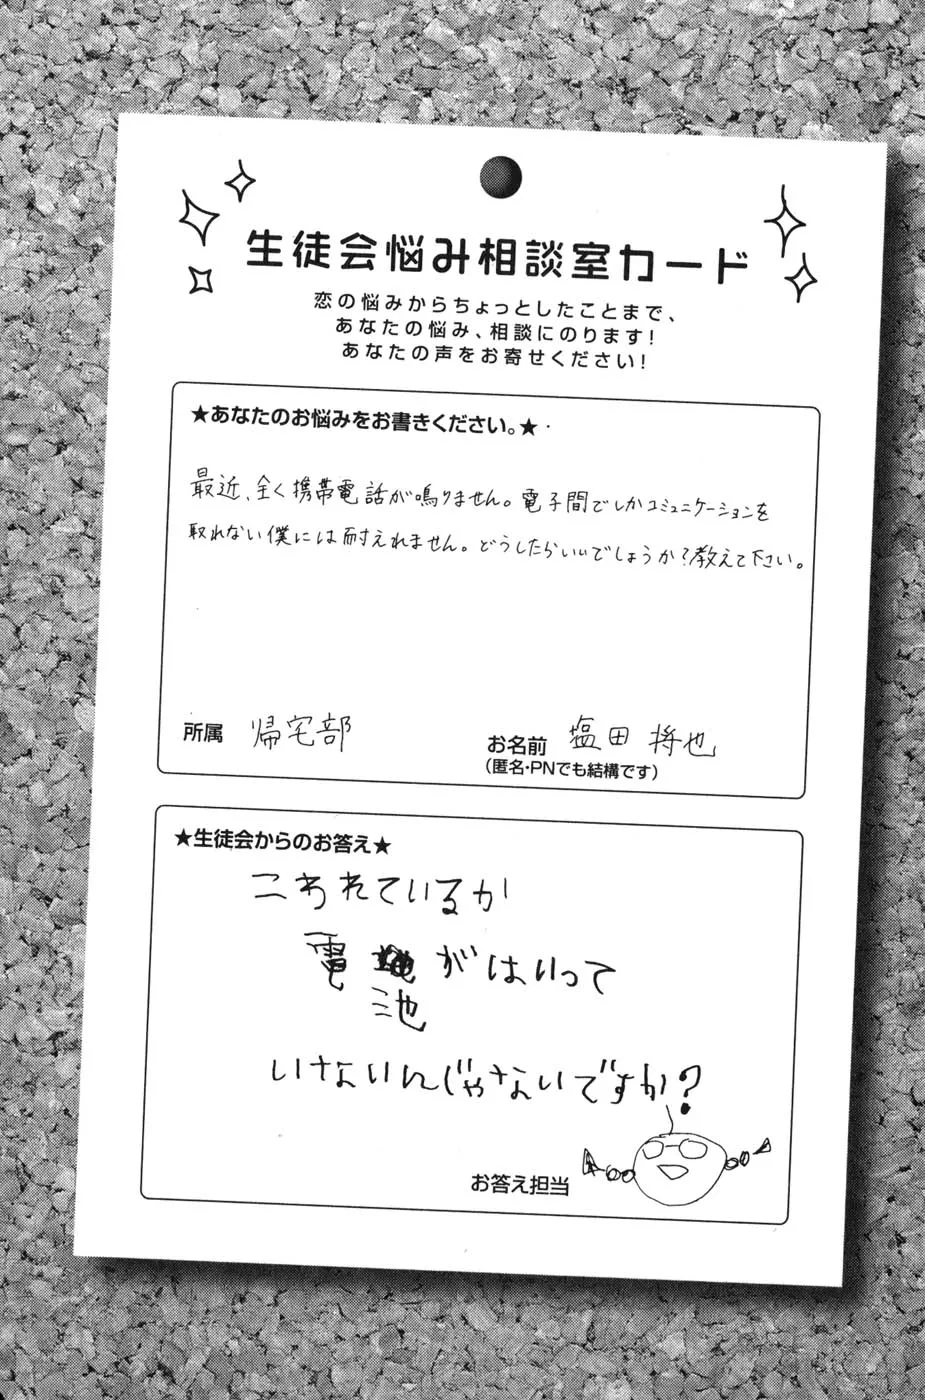 生徒会悩み相談室カード
恋の悩みからちょっとしたことまで、
あなたの悩み、相談にのります!
あなたの声をお寄せください!
★あなたのお悩みをお書きください。★
最近、全く携帯電話が鳴りません。電子間でしかコミュニケーションを
取れない僕には耐えれません。どうしたらいいでしょうか?教えて下さい。
所属 帰宅部
お名前 塩田 将也
(匿名・PNでも結構です)
★生徒会からのお答え★
こわれているか
電池がはいって
いさないんじゃないですか?
お答え担当